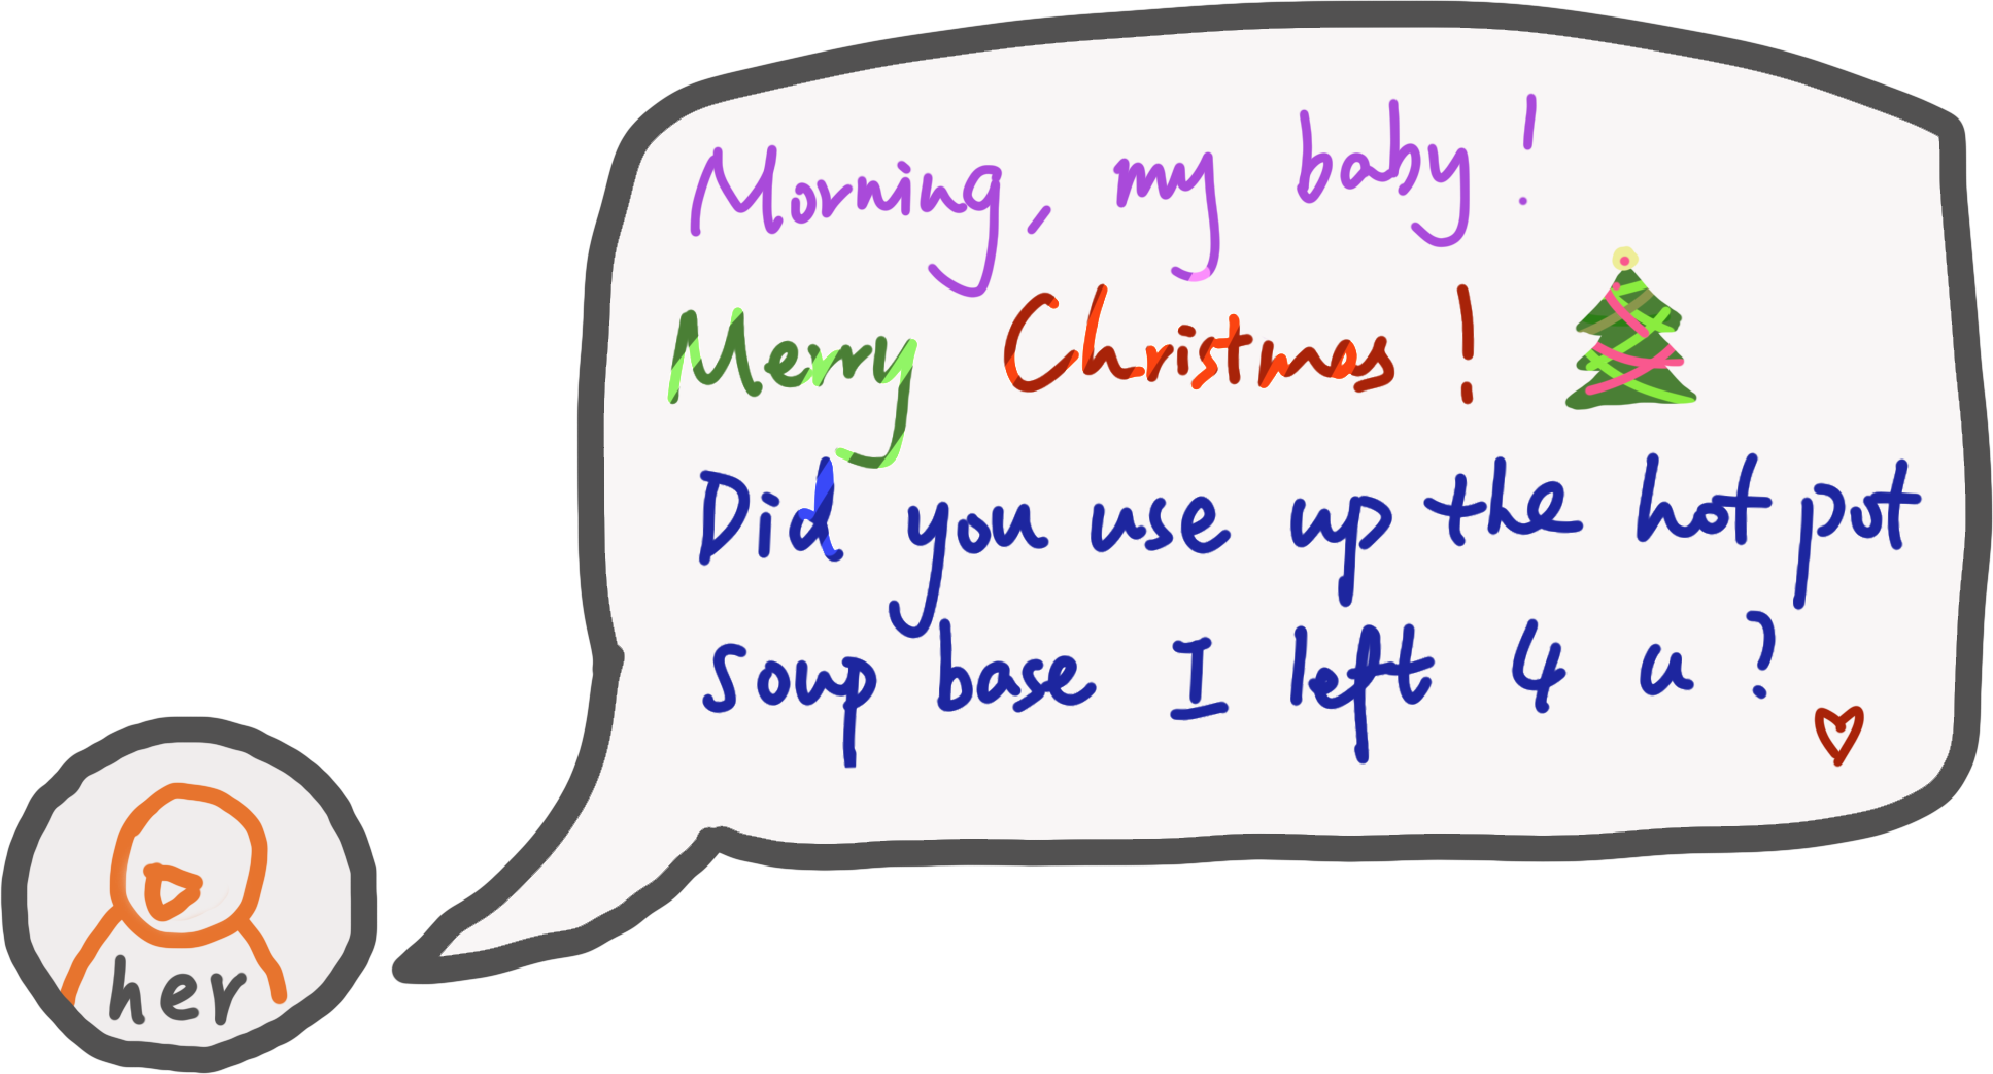 Morning, my baby!
Merry Christmas!
Did you use up the hot pot
soup base I left 4 u?
her